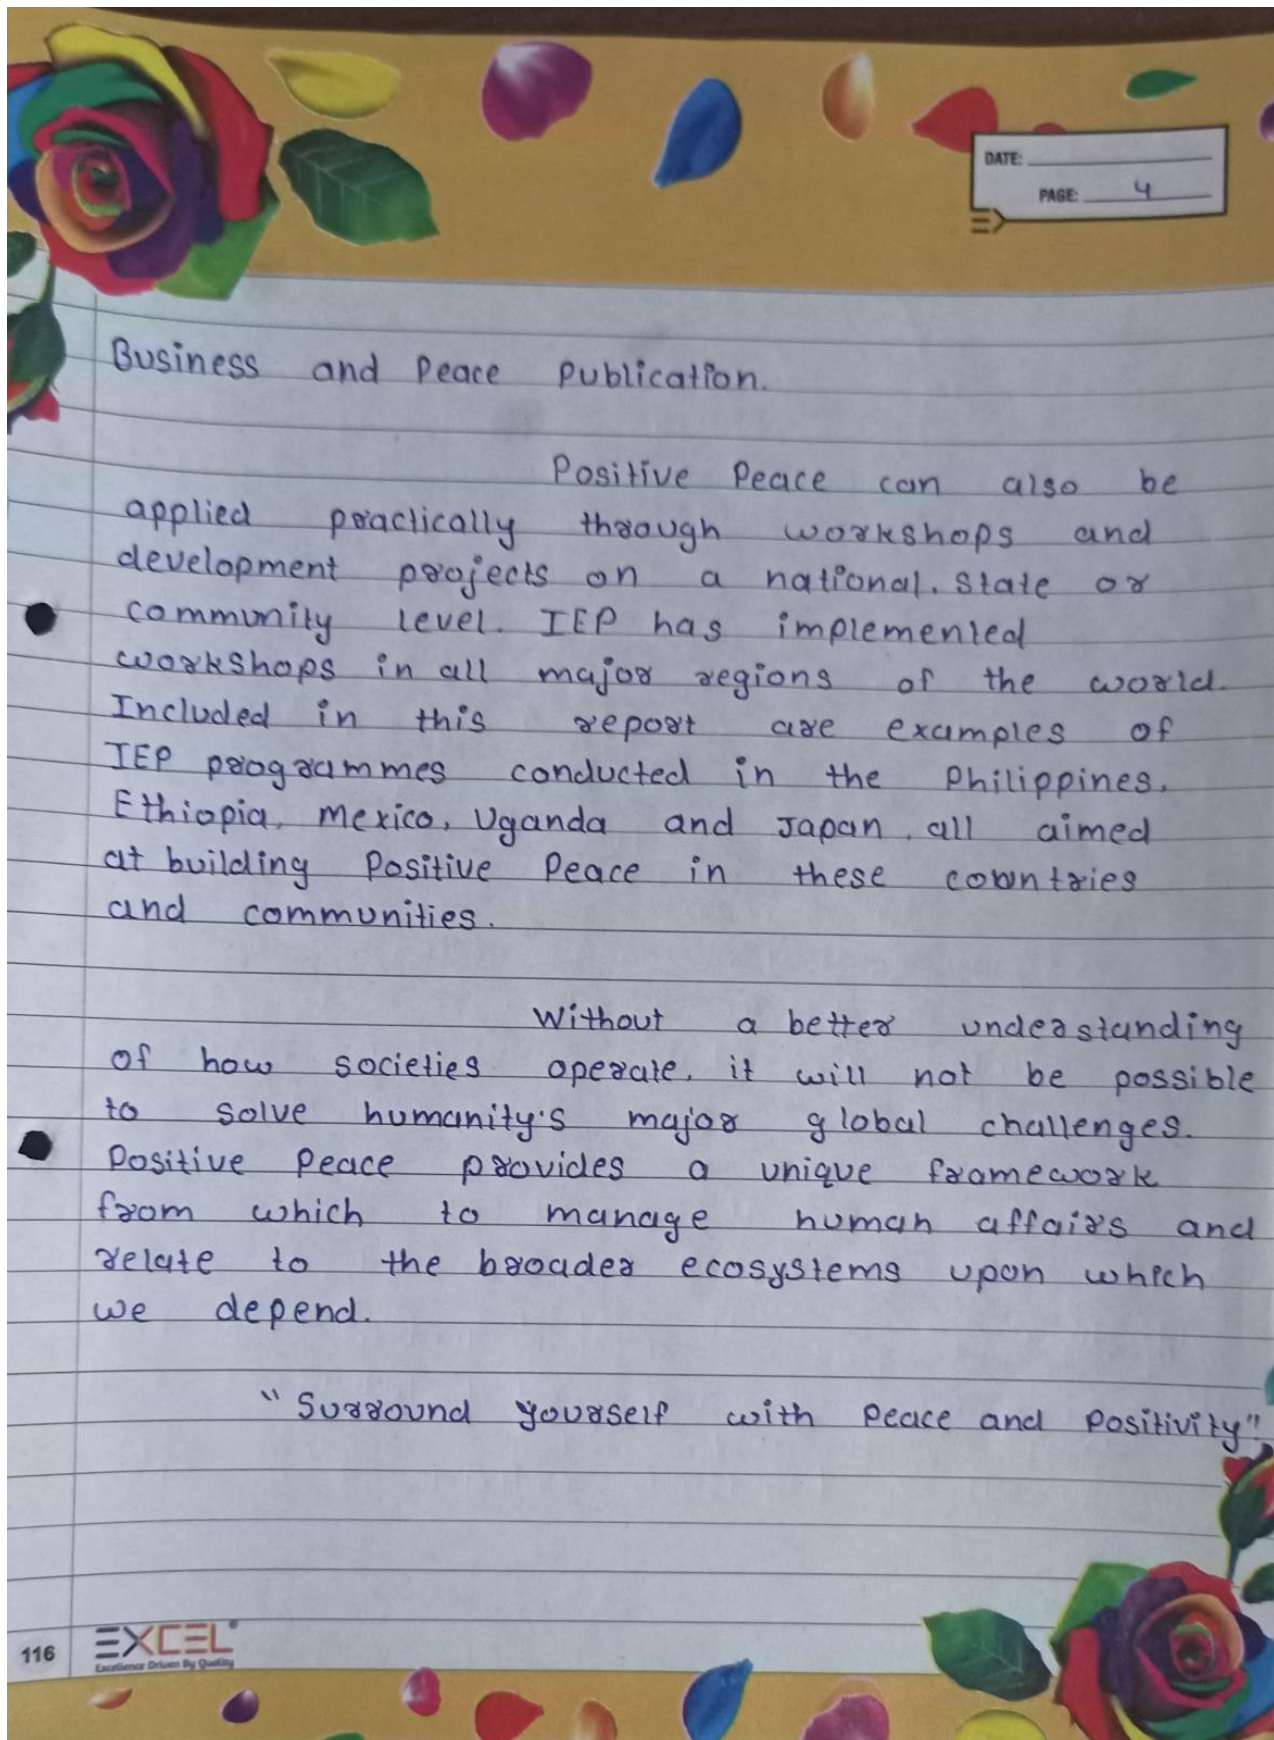 DATE:
PAGE: 4
Business and Peace Publication.
Positive Peace can also be
applied practically through workshops and
development projects on a national. state or
community level. IEP has implemented
workshops in all major regions of the world.
Included in this report are examples of
IEP programmes conducted in the Philippines.
Ethiopia, Mexico, Uganda and Japan, all aimed
at building Positive Peace in these countries
and communities.
Without a better understanding
of how societies operate, it will not be possible
to solve humanity's major global challenges.
Positive Peace provides a unique framework
from which to manage human affairs and
relate to the broader ecosystems upon which
we depend.
"Surround yourself with Peace and Positivity"!
116
EXCEL
Excellence Driven By Quality